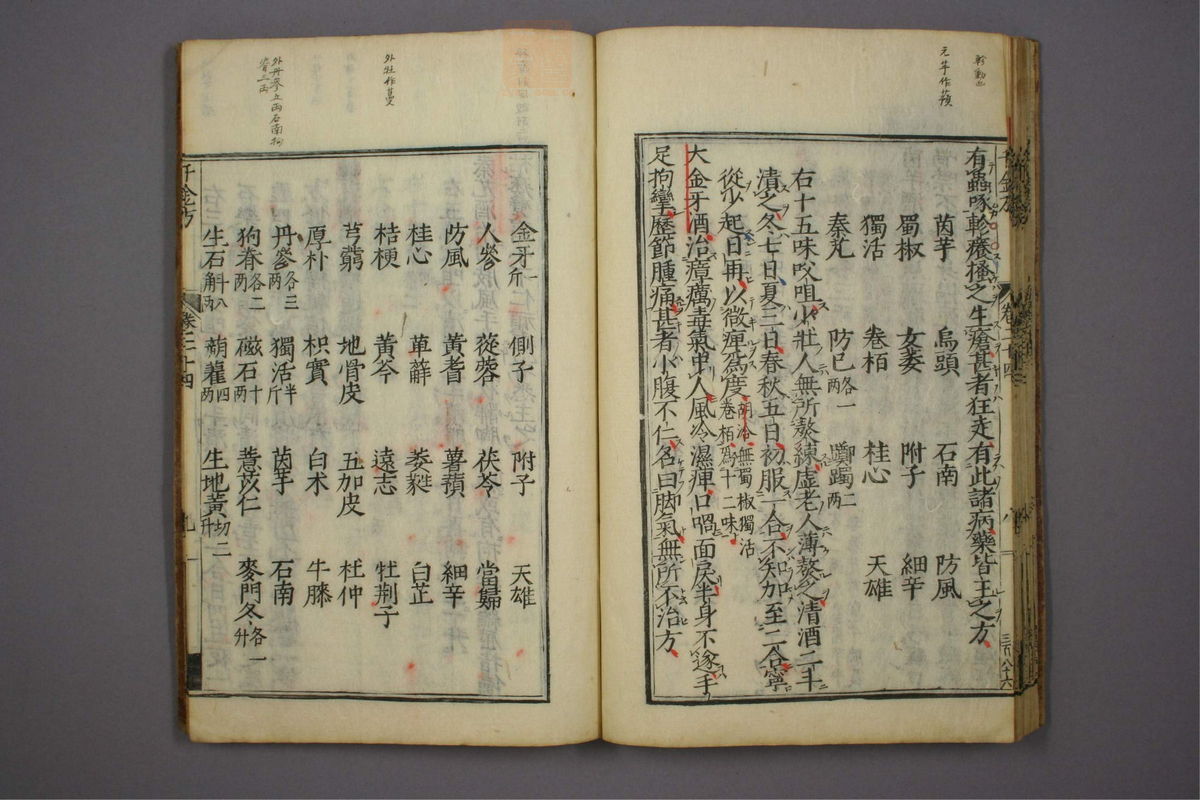 軫動也
元芋作蕷
有蟲啄軫癢搔之生瘡甚者狂走有此諸病藥皆主之方
茵芋 烏頭 石南 防風
蜀椒 女萎 附子 細辛
獨活 卷栢 桂心 天雄
秦艽 防已各一兩 躑躅二兩
右十五味㕮咀少壯人無所熬練虛老人薄熬之清酒二斗
漬之冬七日夏三日春秋五日初服一合不知加至二合寧
從少起日再以微痺爲度胡洽無蜀椒獨活卷栢爲十二味
大金牙酒治瘴癘毒氣中人風冷濕痺口喎面戾半身不遂手
足拘攣歷節腫痛甚者小腹不仁名曰脚氣無所不治方
外牡作蔓
外丹參五兩石南
皆三兩
金牙一斤 側子 附子 天雄
人參 蓯蓉 茯苓 當歸
防風 黃耆 薯蕷 細辛
桂心 萆薢 萎蕤 白芷
桔梗 黃芩 遠志 牡荆子
芎藭 地骨皮 五加皮 杜仲
厚朴 枳實 白朮 牛膝
丹參各三兩 獨活半斤 茵芋 石南
狗脊各二兩 磁石十兩 薏苡仁 麥門冬各一升
生石斛八兩 蒴藋四兩 生地黃切二升
千金方 卷二十四 九